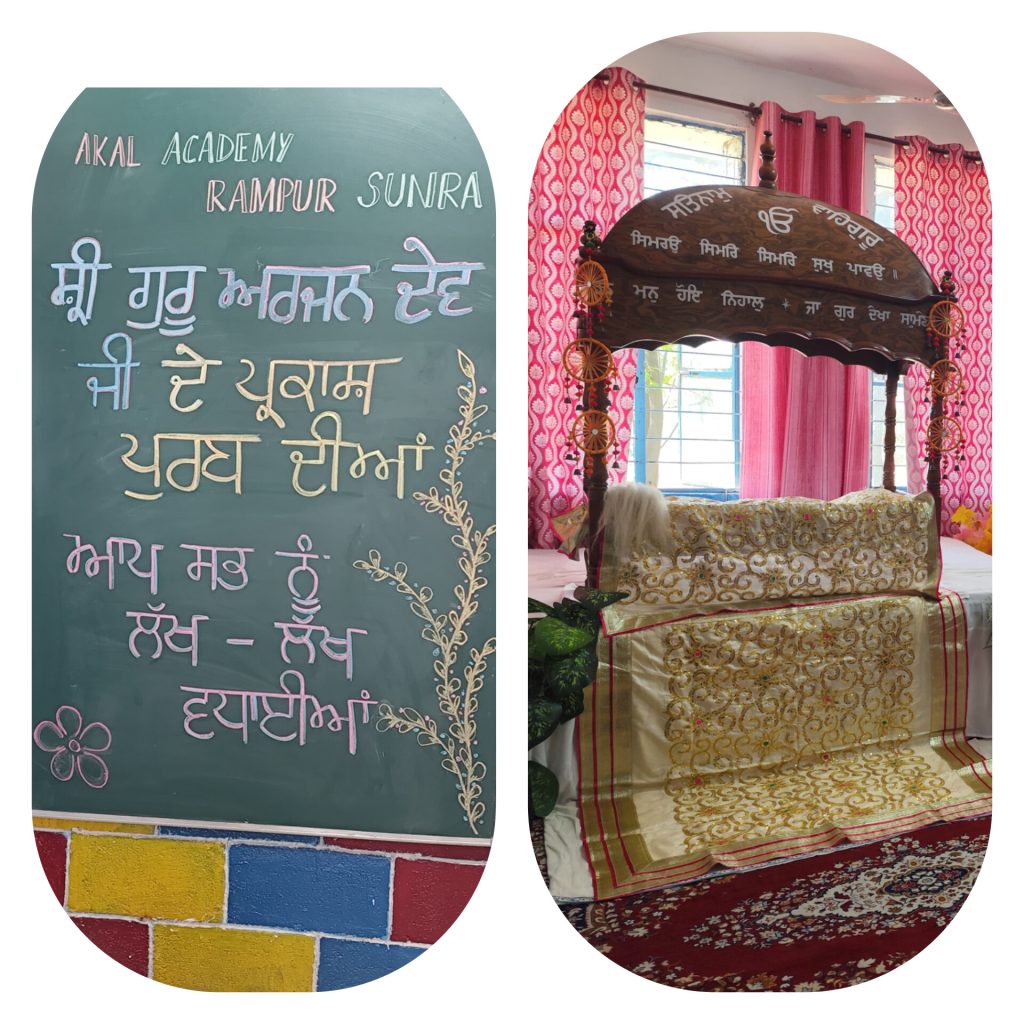 AKAL ACADEMY
RAMPUR SUNRA
ਸ਼੍ਰੀ ਗੁਰੂ ਅਰਜਨ ਦੇਵ
ਜੀ ਦੇ ਪ੍ਰਕਾਸ਼
ਪੁਰਬ ਦੀਆਂ
ਆਪ ਸਭ ਨੂੰ
ਲੱਖ - ਲੱਖ
ਵਧਾਈਆਂ
ਸਤਿਨਾਮੁ ੴ ਵਾਹਿਗੁਰੂ
ਸਿਮਰਉ ਸਿਮਰਿ ਸਿਮਰਿ ਸੁਖੁ ਪਾਵਉ ॥
ਮਨੁ ਹੋਇ ਨਿਹਾਲੁ + ਜਾ ਗੁਰ ਦੇਖਾ